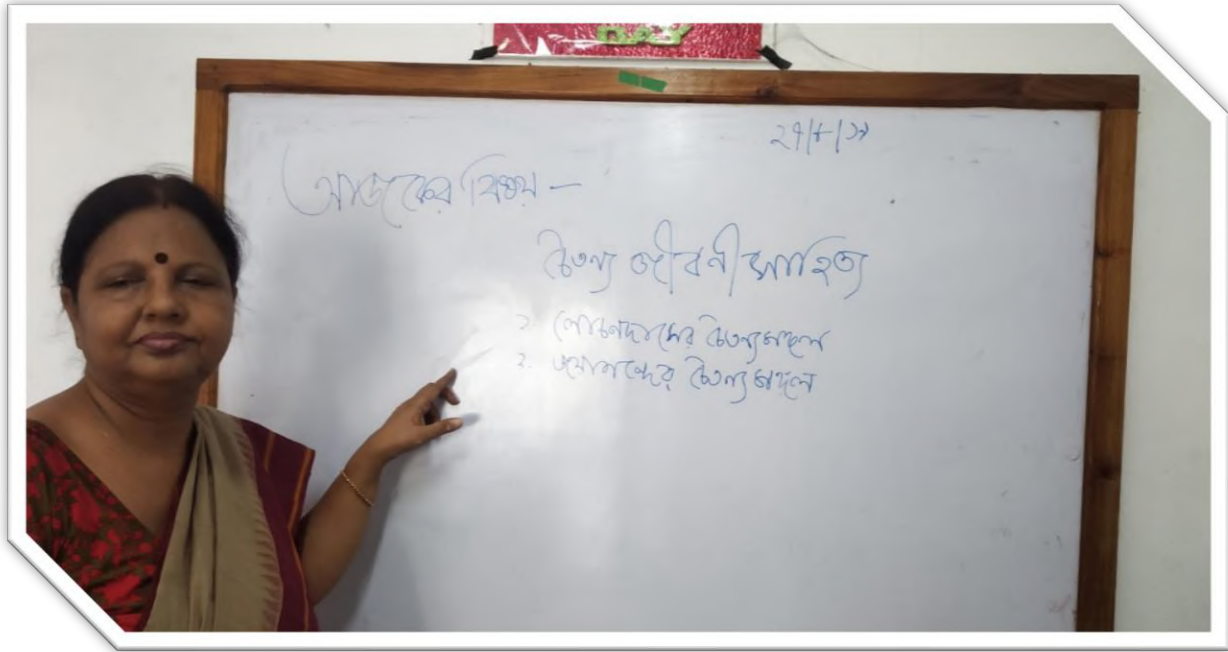 ২৭/৮/১৯
আজকের বিষয় –
চৈতন্য জীবনী সাহিত্য
১. লোচনদাসের চৈতন্যমঙ্গল
২. জয়ানন্দের চৈতন্যমঙ্গল